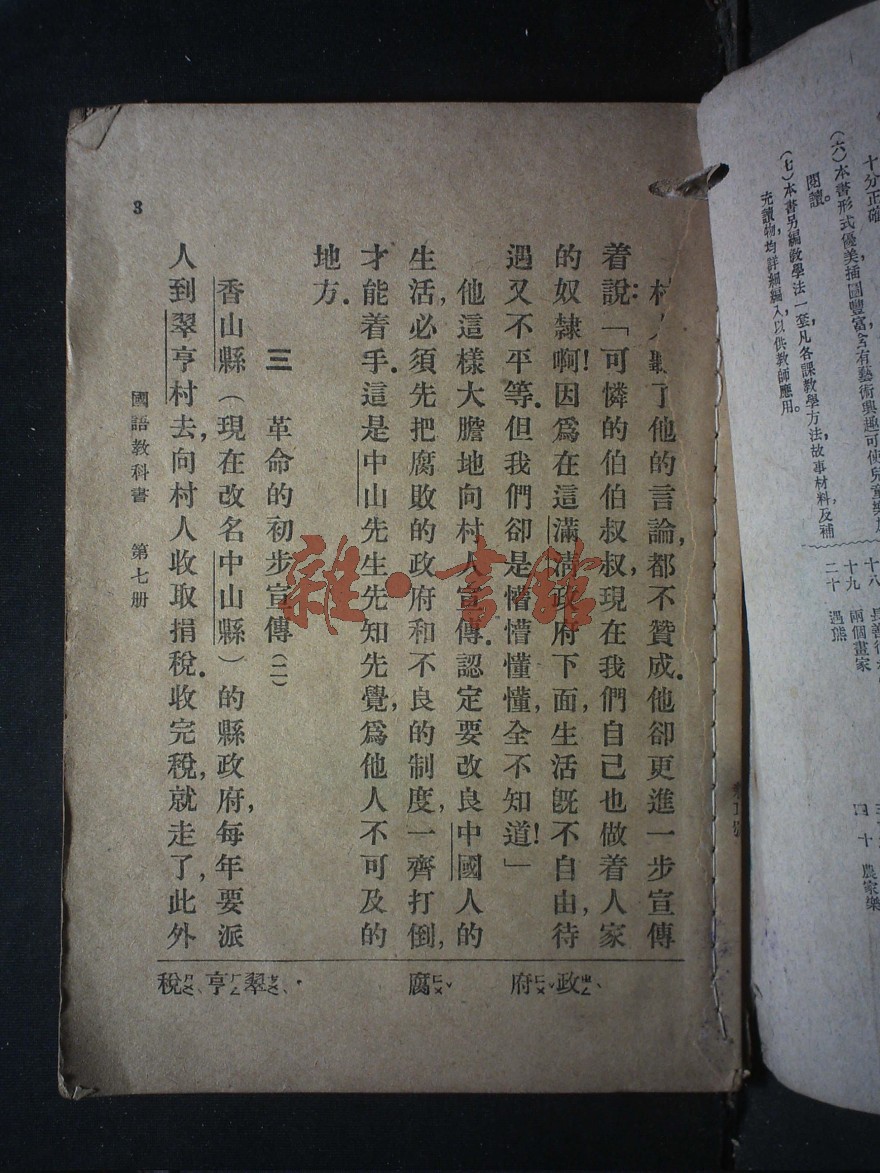 十分正確
(六)本書形式優美,插圖豐富,含有藝術興趣,可使兒童樂於
閱讀。
(七)本書另編教學法一套,凡各課教學方法,故事材料,及補
充讀物,均詳細編入,以供教師應用。
十八
十九 兩個畫家
二十 遇熊
四十 農家樂
村人聽了他的言論,都不贊成。他卻更進一步宣傳
着說:「可憐的伯伯叔叔,現在我們自己也做着人家
的奴隸啊!因爲在這滿淸政府下面,生活旣不自由,待
遇又不平等。但我們卻是懵懵懂懂,全不知道!」
他這樣大膽地向村人宣傳。認定要改良中國人的
生活,必須先把腐敗的政府和不良的制度,一齊打倒,
才能着手。這是中山先生先知先覺,爲他人不可及的
地方。
三 革命的初步宣傳(二)
香山縣(現在改名中山縣)的縣政府,每年要派
人到翠亨村去,向村人收取捐稅。收完稅,就走了,此外
政ㄓㄥˋ
府ㄈㄨˇ
腐ㄈㄨˇ
翠ㄘㄨㄟˋ
亨ㄏㄥ
稅ㄕㄨㄟˋ
國語教科書 第七册
3
雜·書館